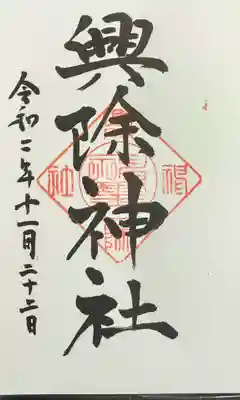 興除神社
令和二年十一月二十二日